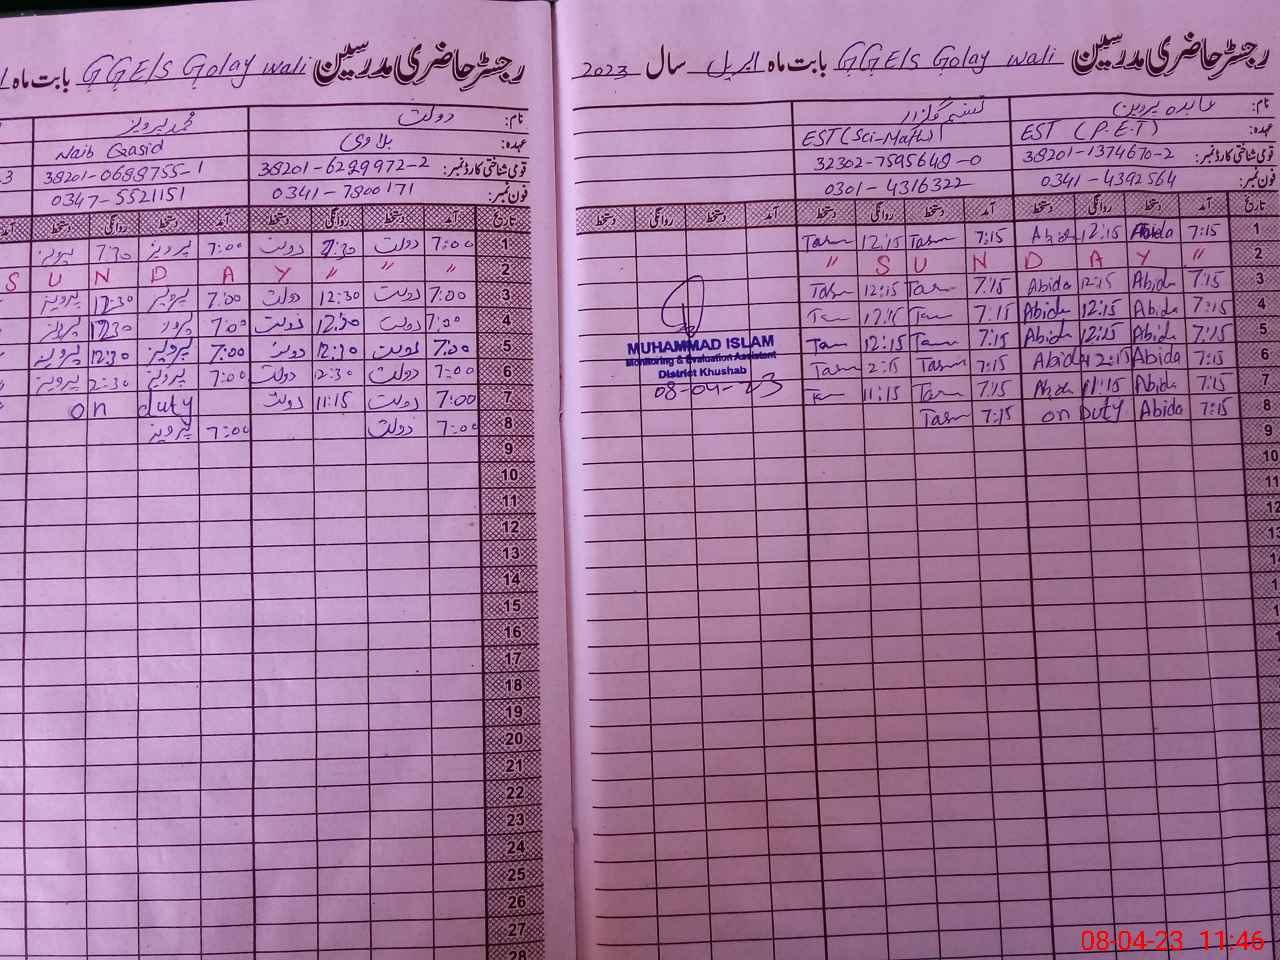 رجسٹر حاضری مدرسین GGEIS Golay wali بابت ماہ
نام: دولت محمد پرویز
عہدہ: بلاوی Naib Qasid
قومی شناختی کارڈ نمبر: 38201-6299972-2 38201-0689755-1
فون نمبر: 0341-7800171 0347-5521151
تاریخ آمد دستخط روانگی دستخط آمد دستخط روانگی دستخط
1 7:00 دولت دولت 7:00 پرویز 7:30 پرویز
2 " " " Y A D N U S
3 7:00 دولت 12:30 دولت 7:00 پرویز 12:30 پرویز
4 7:00 دولت 12:30 دولت 7:00 پرویز 12:30 پرویز
5 7:00 دولت 12:30 دولت 7:00 پرویز 12:30 پرویز
6 7:00 دولت 12:30 دولت 7:00 پرویز 2:30 پرویز
7 7:00 دولت 11:15 دولت on duty
8 7:00 دولت 7:00 پرویز
9
10
11
12
13
14
15
16
17
18
19
20
21
22
23
24
25
26
27
28
رجسٹر حاضری مدرسین GGEIS Golay wali بابت ماہ اپریل سال 2023
نام: عابدہ پروین تسنیم گلزار
عہدہ: EST (P.E.T) EST (Sci-Maths)
قومی شناختی کارڈ نمبر: 38201-1374670-2 32302-7595648-0
فون نمبر: 0341-4392564 0301-4316322
تاریخ آمد دستخط روانگی دستخط آمد دستخط روانگی دستخط آمد دستخط روانگی دستخط
1 7:15 Abida 12:15 Abida 7:15 Tasn 12:15 Tasn
2 " Y A D N U S "
3 7:15 Abida 12:15 Abida 7:15 Tasn 12:15 Tasn
4 7:15 Abida 12:15 Abida 7:15 Tasn 12:15 Tasn
5 7:15 Abida 12:15 Abida 7:15 Tasn 12:15 Tasn
6 7:15 Abida 12:15 Abida 7:15 Tasn 2:15 Tasn
7 7:15 Abida 11:15 Abida 7:15 Tasn 11:15 Tasn
8 7:15 Abida on Duty 7:15 Tasn
9
10
11
12
MUHAMMAD ISLAM
Monitoring & Evaluation Assistent
District Khushab
08-04-23
08-04-23 11:46